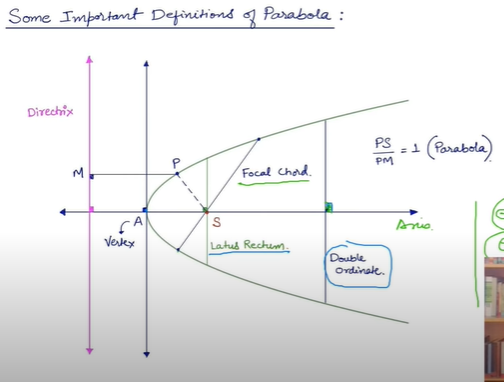 Some Important Definitions of Parabola :
Directrix
M
P
Focal Chord.
PS/PM = 1 (Parabola)
A
S
Axis.
Vertex
Latus Rectum.
Double
Ordinate.